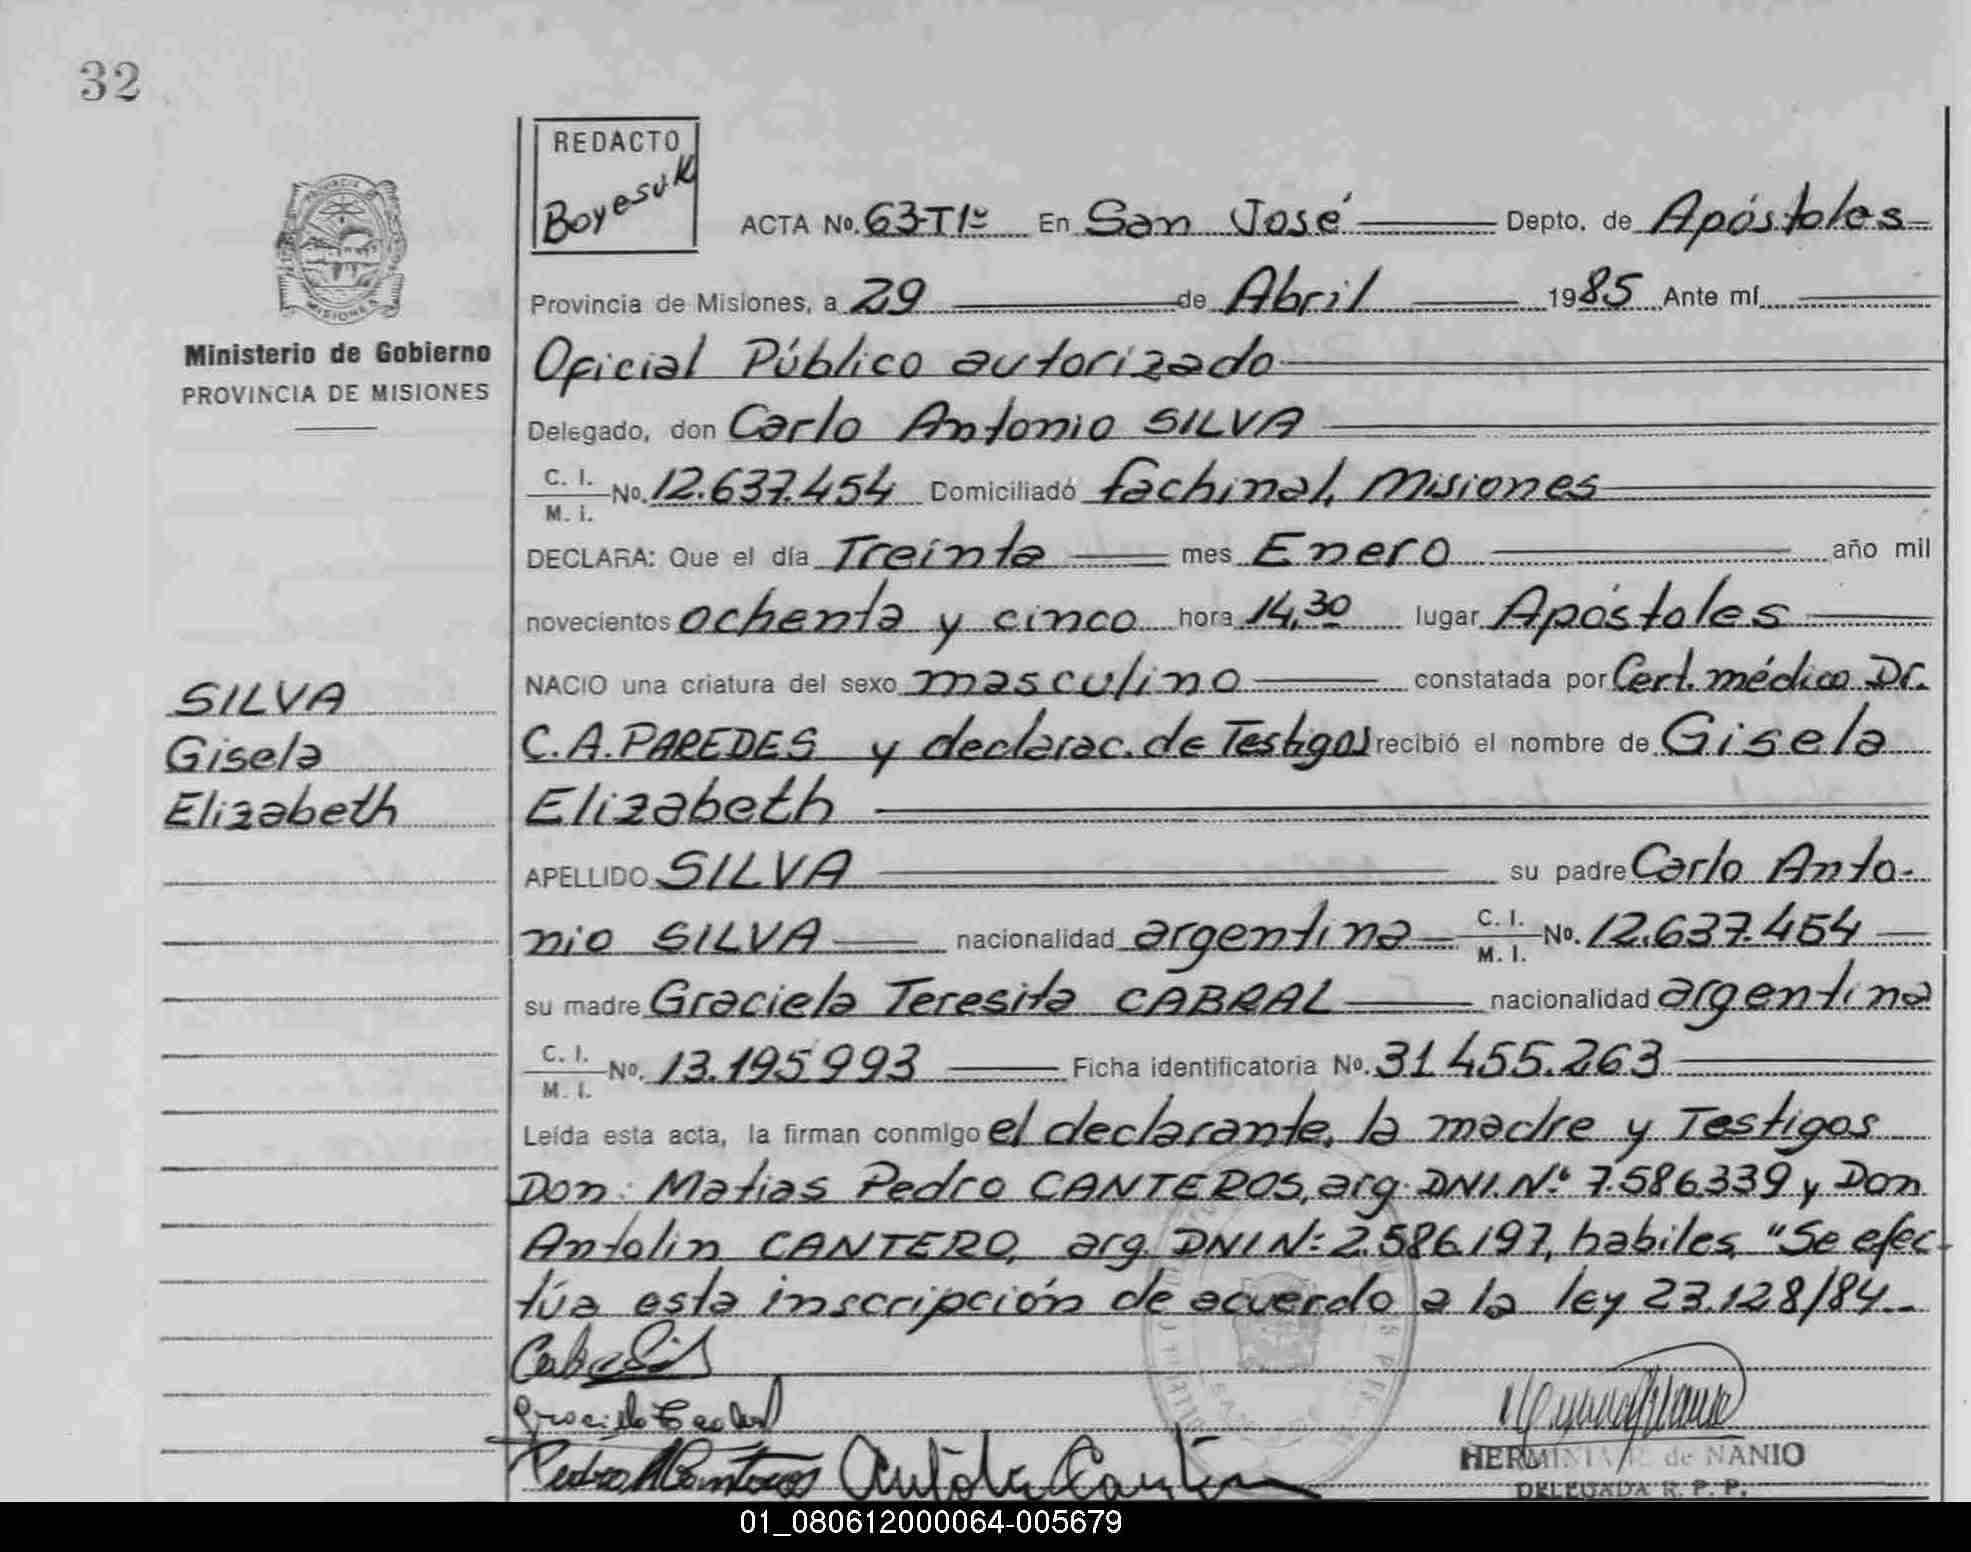 32
REDACTO
Boyesuk
ACTA No. 63-T1º En San José Depto. de Apóstoles
Provincia de Misiones, a 29 de Abril 1985 Ante mí
Ministerio de Gobierno
PROVINCIA DE MISIONES
Oficial Público autorizado
Delegado, don Carlo Antonio SILVA
C. I. M. I. No. 12.637.454 Domiciliadó fachinal, Misiones
DECLARA: Que el día Treinta mes Enero año mil
novecientos ochenta y cinco hora 14,30 lugar Apóstoles
NACIO una criatura del sexo masculino constatada por Cert. médico Dr.
C.A. PAREDES y declarac. de Testigos recibió el nombre de Gisela
Elizabeth
SILVA
Gisela
Elizabeth
APELLIDO SILVA su padre Carlo Anto-
nio SILVA nacionalidad argentina C. I. M. I. No. 12.637.454
su madre Graciela Teresita CABRAL nacionalidad argentina
C. I. M. I. No. 13.195993 Ficha identificatoria No. 31455.263
Leída esta acta, la firman conmigo el declarante, la madre y Testigos
Don: Matias Pedro CANTEROS, arg. DNI.Nº 7.586339 y Don
Antolin CANTERO, arg. DNI N: 2.586.197, habiles, "Se efec-
túa esta inscripción de acuerdo a la ley 23.128/84..
HERMINIA de NANIO
DELEGADA R. P. P.
01_080612000064-005679